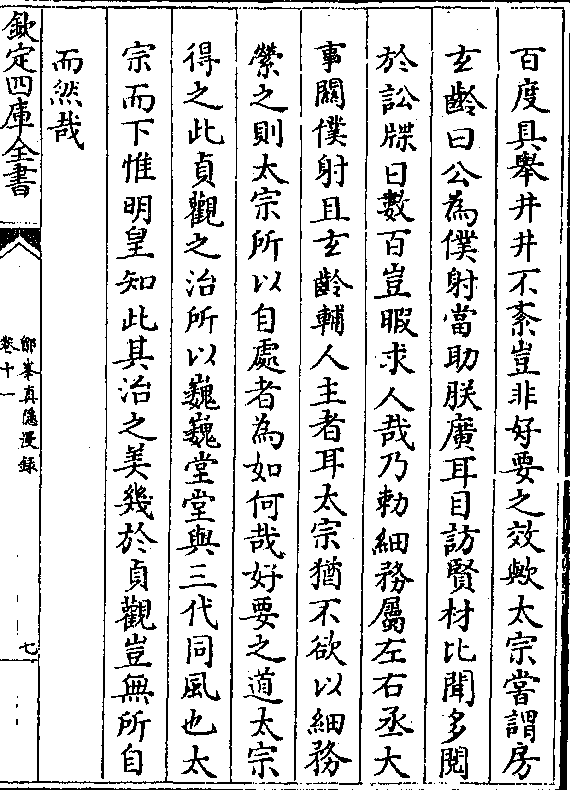 百度具舉井井不紊豈非好要之效歟太宗嘗謂房
玄齡曰公為僕射當助朕廣耳目訪賢材比聞多閱
於訟牒日數百豈暇求人哉乃勅細務屬左右丞大
事關僕射且玄齡輔人主者耳太宗猶不欲以細務
縈之則太宗所以自處者為如何哉好要之道太宗
得之此貞觀之治所以巍巍堂堂與三代同風也太
宗而下惟明皇知此其治之美幾於貞觀豈無所自
而然哉
欽定四庫全書
鄮峯真隱漫録
卷十一
七